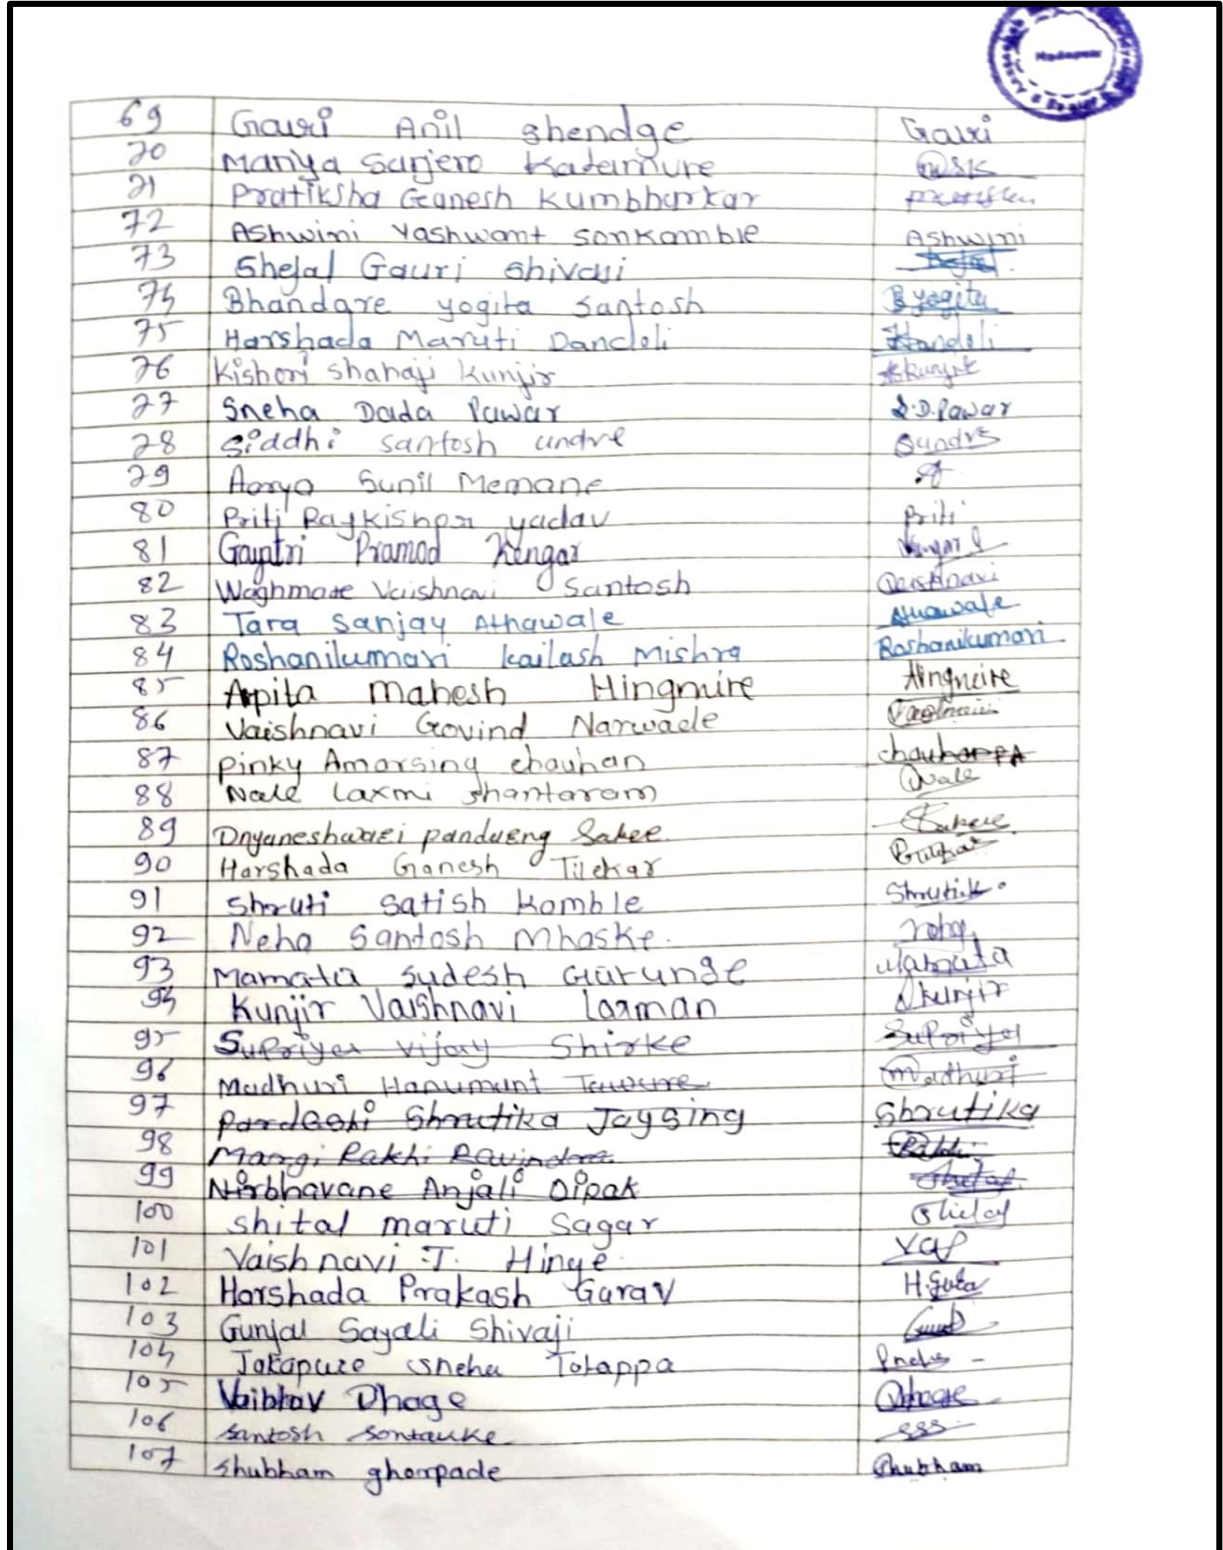 Hadapsar
69 Gauri Anil Shendge Gauri
70 Mariya Sanjero
71 Pratiksha Ganesh Kumbharkar
72 Ashwini Yashwant Sonkamble Ashwini
73 Shejal Gauri Shivaji
74 Bhandare yogita Santosh B yogita
75 Harshada Maruti Dandeli
76 Kishori Shahaji Kunjir
77 Sneha Dada Pawar S.D.Pawar
78 Siddhi santosh undre
79 Aarya Sunil Memane
80 Priti Rajkishor yadav Priti
81 Gayatri Pramod Kengar
82 Waghmare Vaishnavi Santosh Vaishnavi
83 Tara Sanjay Athawale Athawale
84 Roshanikumari kailash Mishra Roshanikumari
85 Arpita Mahesh Hingmire Hingmire
86 Vaishnavi Govind Narwade
87 Pinky Amarsing chauhan chauhan PA
88 Nale Laxmi Shantaram Nale
89 Dnyaneshwari pandurng Sakee
90 Harshada Ganesh Tilekar
91 Shruti Satish Kamble
92 Neha Santosh Mhaske
93 Mamata Sudesh Gurunge Mamata
94 Kunjir Vaishnavi Laxman kunjir
95 Supriya vijay Shirke Supriya
96 Madhuri Hanumant Tawure Madhuri
97 Pardeshi Shrutika Jaysing Shrutika
98 Mangi Rakhi Ravindra Rakhi
99 Nirbhavane Anjali Dipak
100 Shital maruti Sagar Shital
101 Vaishnavi J. Hinge
102 Harshada Prakash Gurav
103 Gunjal Sayali Shivaji
104 Jokapure Sneha Totappa
105 Vaibhav Dhage Dhage
106 Santosh sontakke SSS
107 Shubham ghorpade Shubham